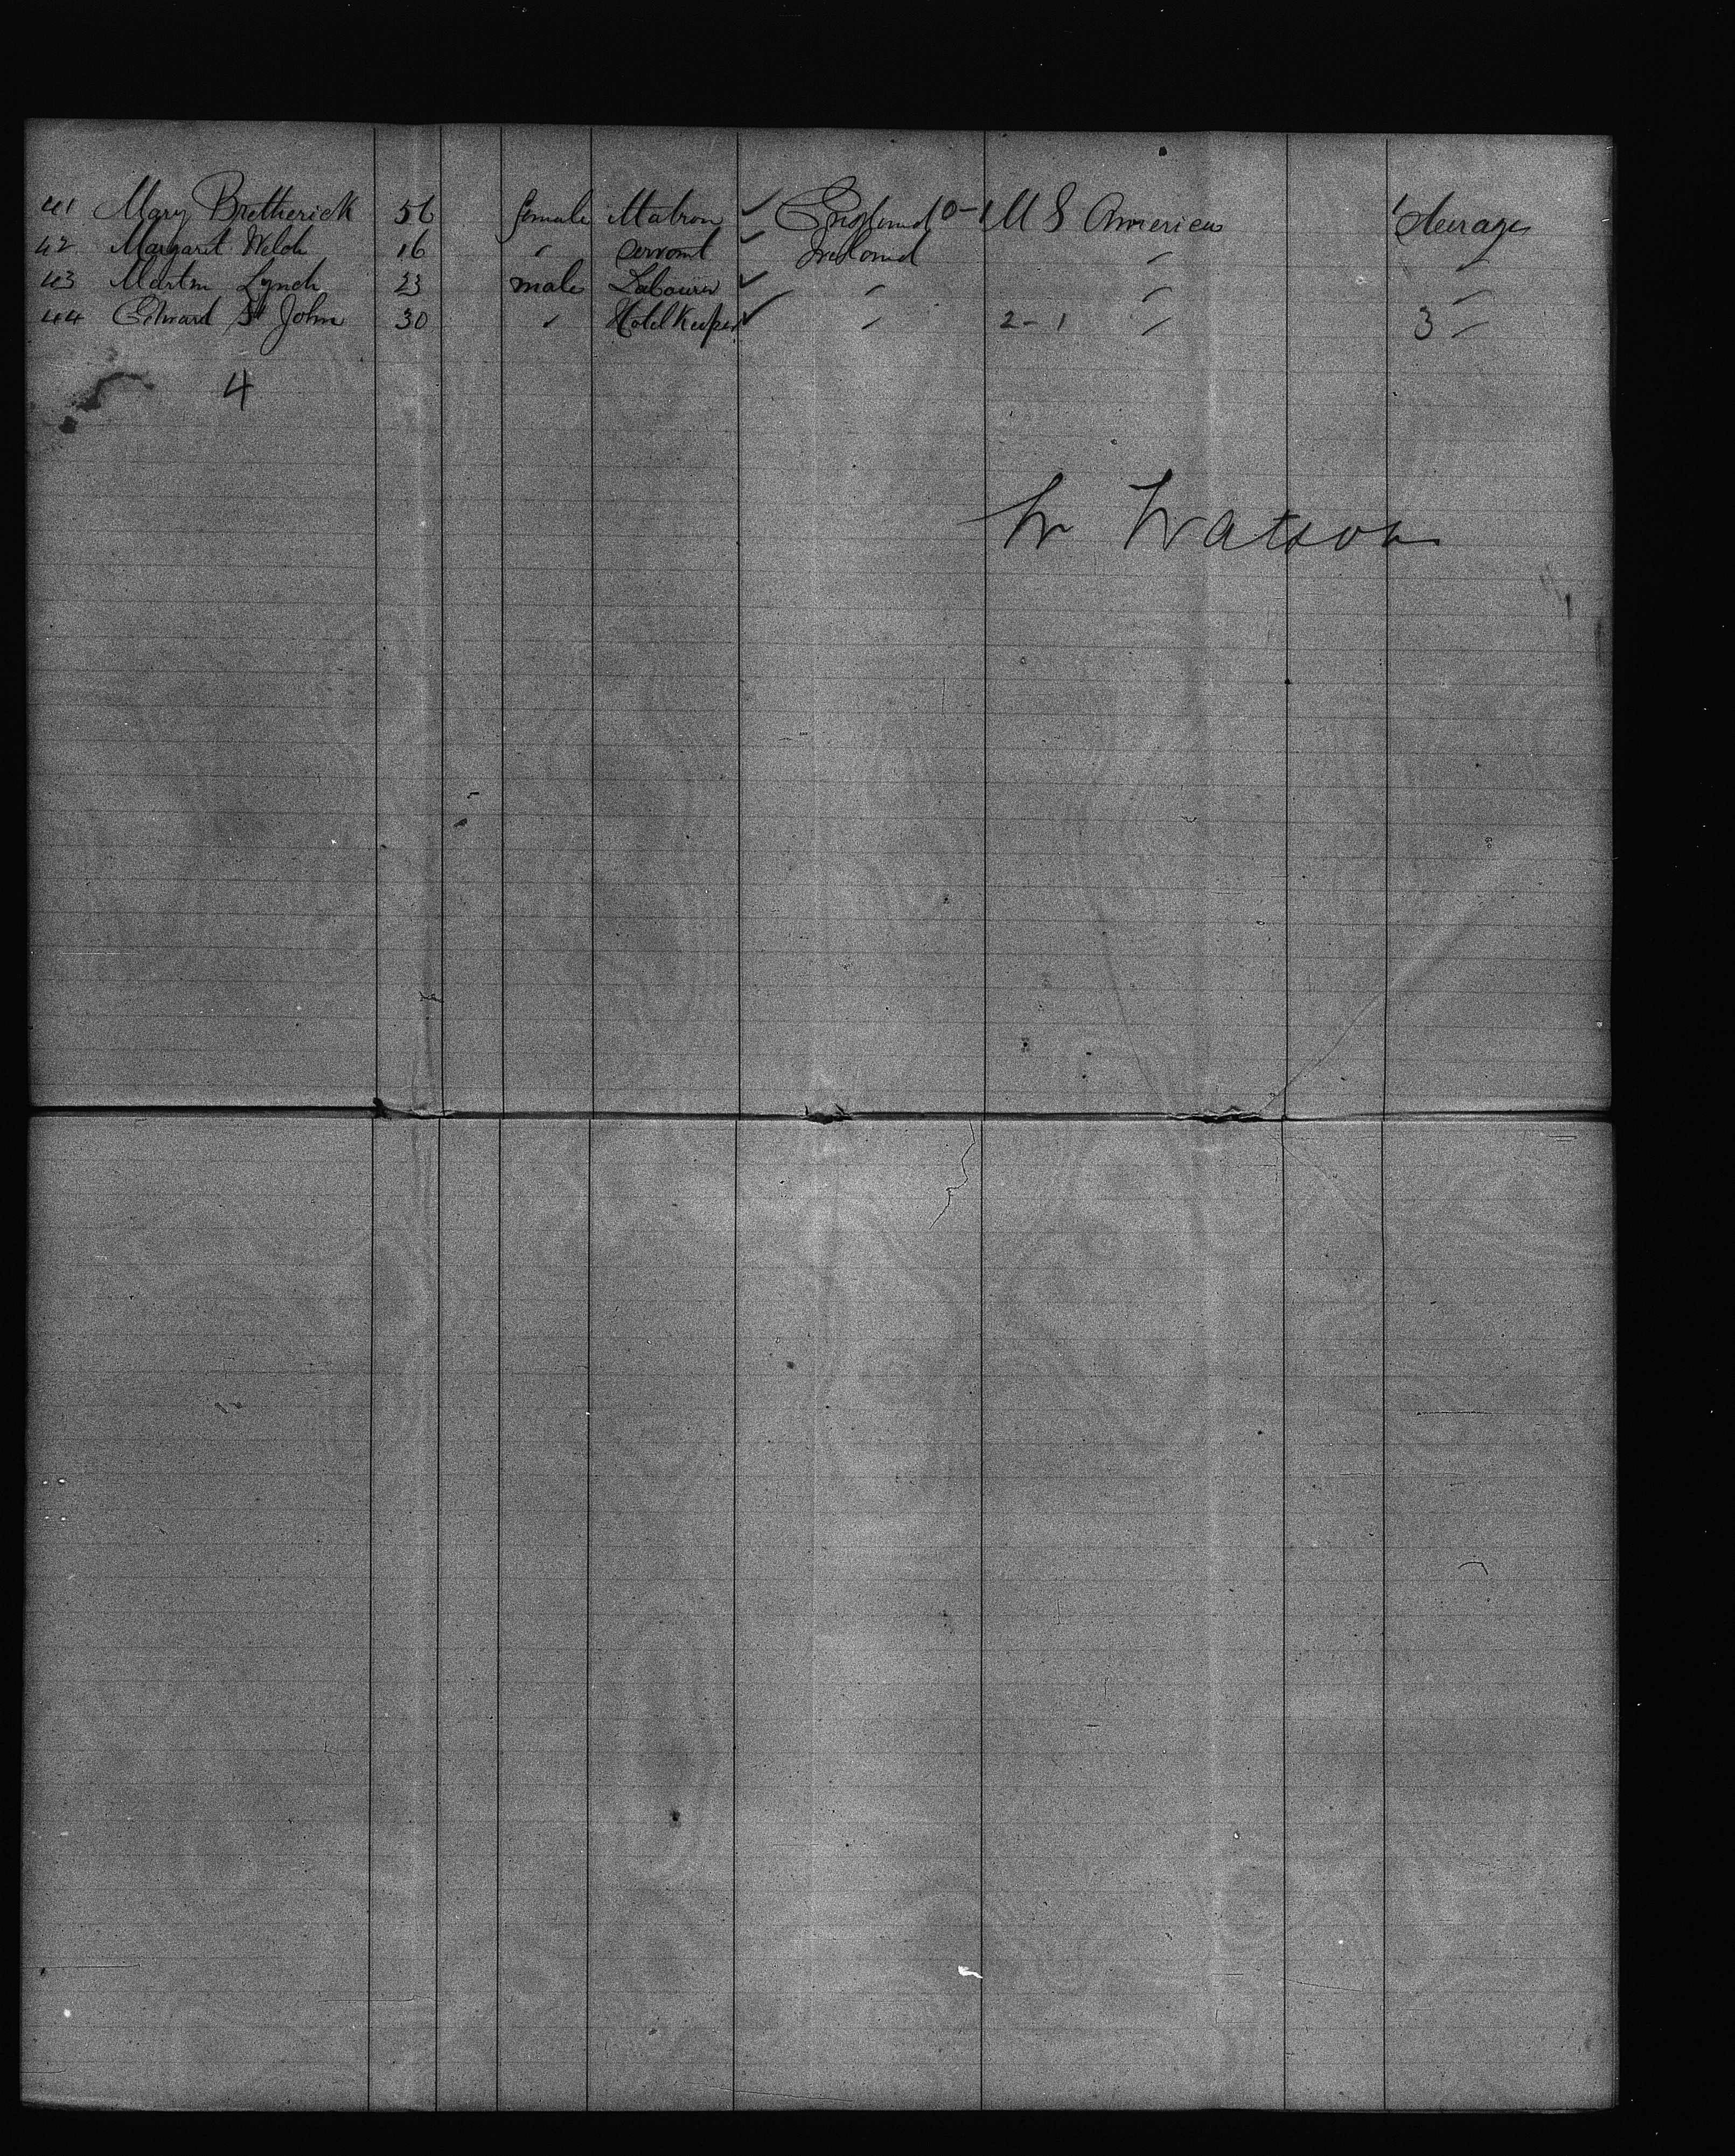 41 Mary Bretherick 56 female Matron ✓ England 0-1 U S America 1 Steerage
42 Margaret Welch 16 " Servant ✓ Ireland " "
43 Martin Lynch 23 male Labourer ✓ " " "
44 Edward St John 30 " Hotel Keeper ✓ " 2-1 " 3 "
4
W Watson